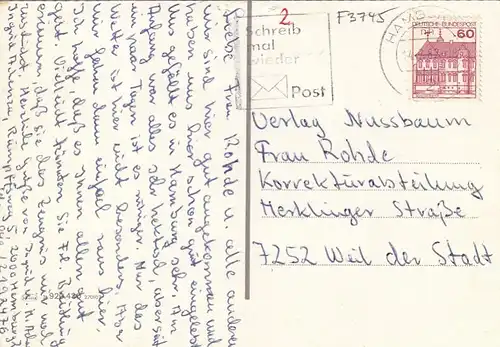 Liebe Frau Rohde u. alle anderen
wir sind hier gut angekommen und
haben uns hier schon gut eingelebt.
Uns gefällt es in Hamburg sehr. Am
Anfang war alles sehr hektisch, aber seit
ein paar Tagen ist es ruhiger. Nur das
Wetter ist hier nicht besonders. Aber
wir fahren dann einfach raus hier.
Ich hoffe, daß es Ihnen allen gut
geht. Vielleicht könnten Sie Frl.
erinnern, daß sie das Zeugnis mir noch
zuschickt. Herzliche Grüße von Ingrid
2000 Hamburg
2.
F3745
Schreib
mal
wieder
Post
HAMB
DEUTSCHE BUNDESPOST
60
Verlag Nussbaum
Frau Rohde
Korrekturabteilung
Merklinger Straße
7252 Weil der Stadt